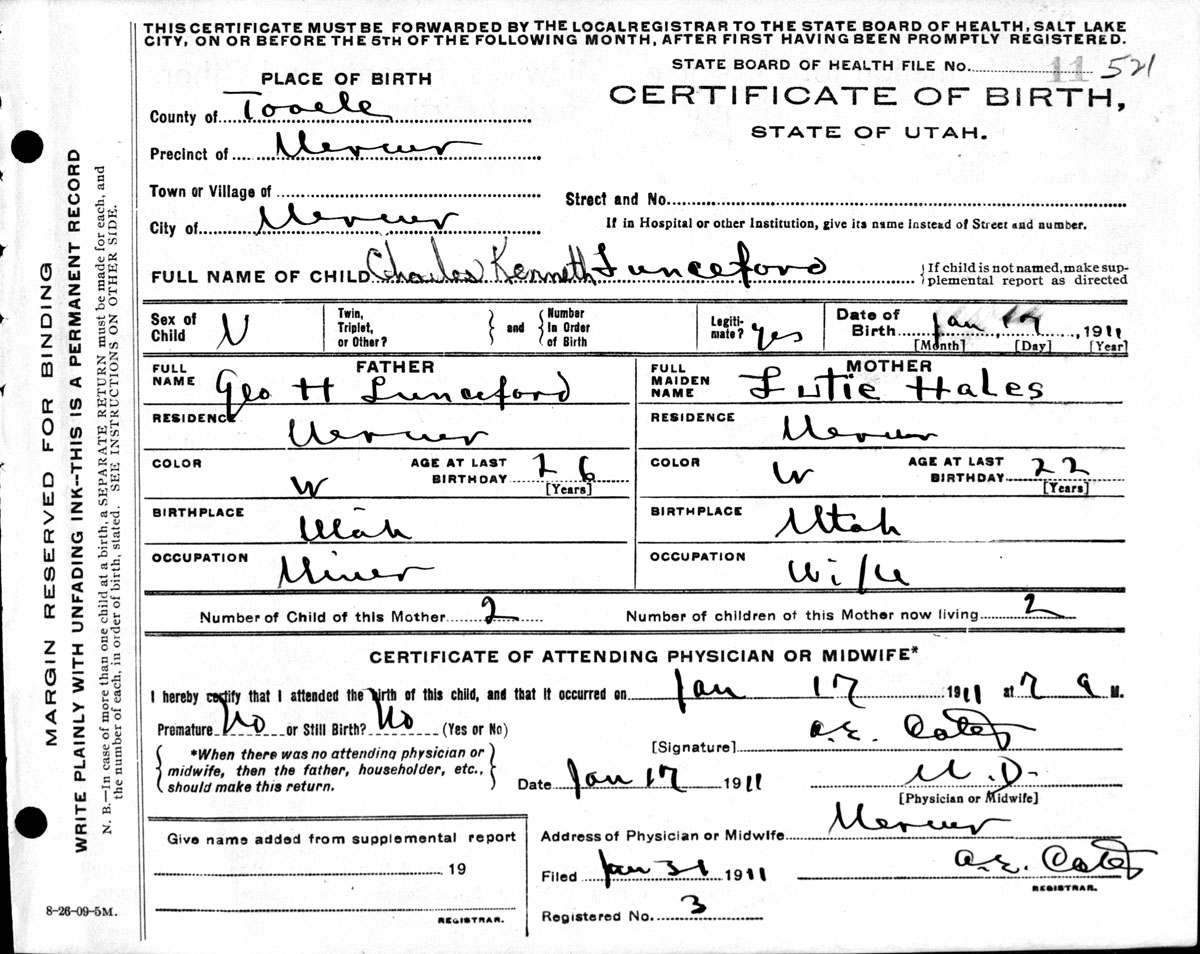 THIS CERTIFICATE MUST BE FORWARDED BY THE LOCALREGISTRAR TO THE STATE BOARD OF HEALTH, SALT LAKE
CITY, ON OR BEFORE THE 5TH OF THE FOLLOWING MONTH, AFTER FIRST HAVING BEEN PROMPTLY REGISTERED.
STATE BOARD OF HEALTH FILE NO. 11 521
PLACE OF BIRTH
CERTIFICATE OF BIRTH,
STATE OF UTAH.
County of Tooele
Precinct of Mercur
Town or Village of
Street and No.
City of Mercur
If in Hospital or other Institution, give its name instead of Street and number.
FULL NAME OF CHILD Charles Kenneth Lunceford
{If child is not named, make sup-
plemental report as directed
Sex of Child M
Twin, Triplet, or Other?
} and {
Number In Order of Birth
Legiti-mate? yes
Date of Birth Jan 17, 1911
[Month] [Day] [Year]
FATHER
FULL NAME Geo H Lunceford
RESIDENCE Mercur
COLOR W
AGE AT LAST BIRTHDAY 26
[Years]
BIRTHPLACE Utah
OCCUPATION Miner
MOTHER
FULL MAIDEN NAME Lutie Hales
RESIDENCE Mercur
COLOR W
AGE AT LAST BIRTHDAY 22
[Years]
BIRTHPLACE Utah
OCCUPATION Wife
Number of Child of this Mother 2
Number of children of this Mother now living 2
CERTIFICATE OF ATTENDING PHYSICIAN OR MIDWIFE*
I hereby certify that I attended the birth of this child, and that it occurred on Jan 17 1911 at 7 a M.
Premature No or Still Birth? No (Yes or No)
{*When there was no attending physician or
midwife, then the father, householder, etc.,
should make this return.}
[Signature] A.E.
Date Jan 17 1911
M.D.
[Physician or Midwife]
Address of Physician or Midwife Mercur
Give name added from supplemental report
19
REGISTRAR.
Filed Jan 31 1911
A.E.
REGISTRAR.
Registered No. 3
8-26-09-5M.
MARGIN RESERVED FOR BINDING
WRITE PLAINLY WITH UNFADING INK--THIS IS A PERMANENT RECORD
N. B.—In case of more than one child at a birth, a SEPARATE RETURN must be made for each, and
the number of each, in order of birth, stated. SEE INSTRUCTIONS ON OTHER SIDE.